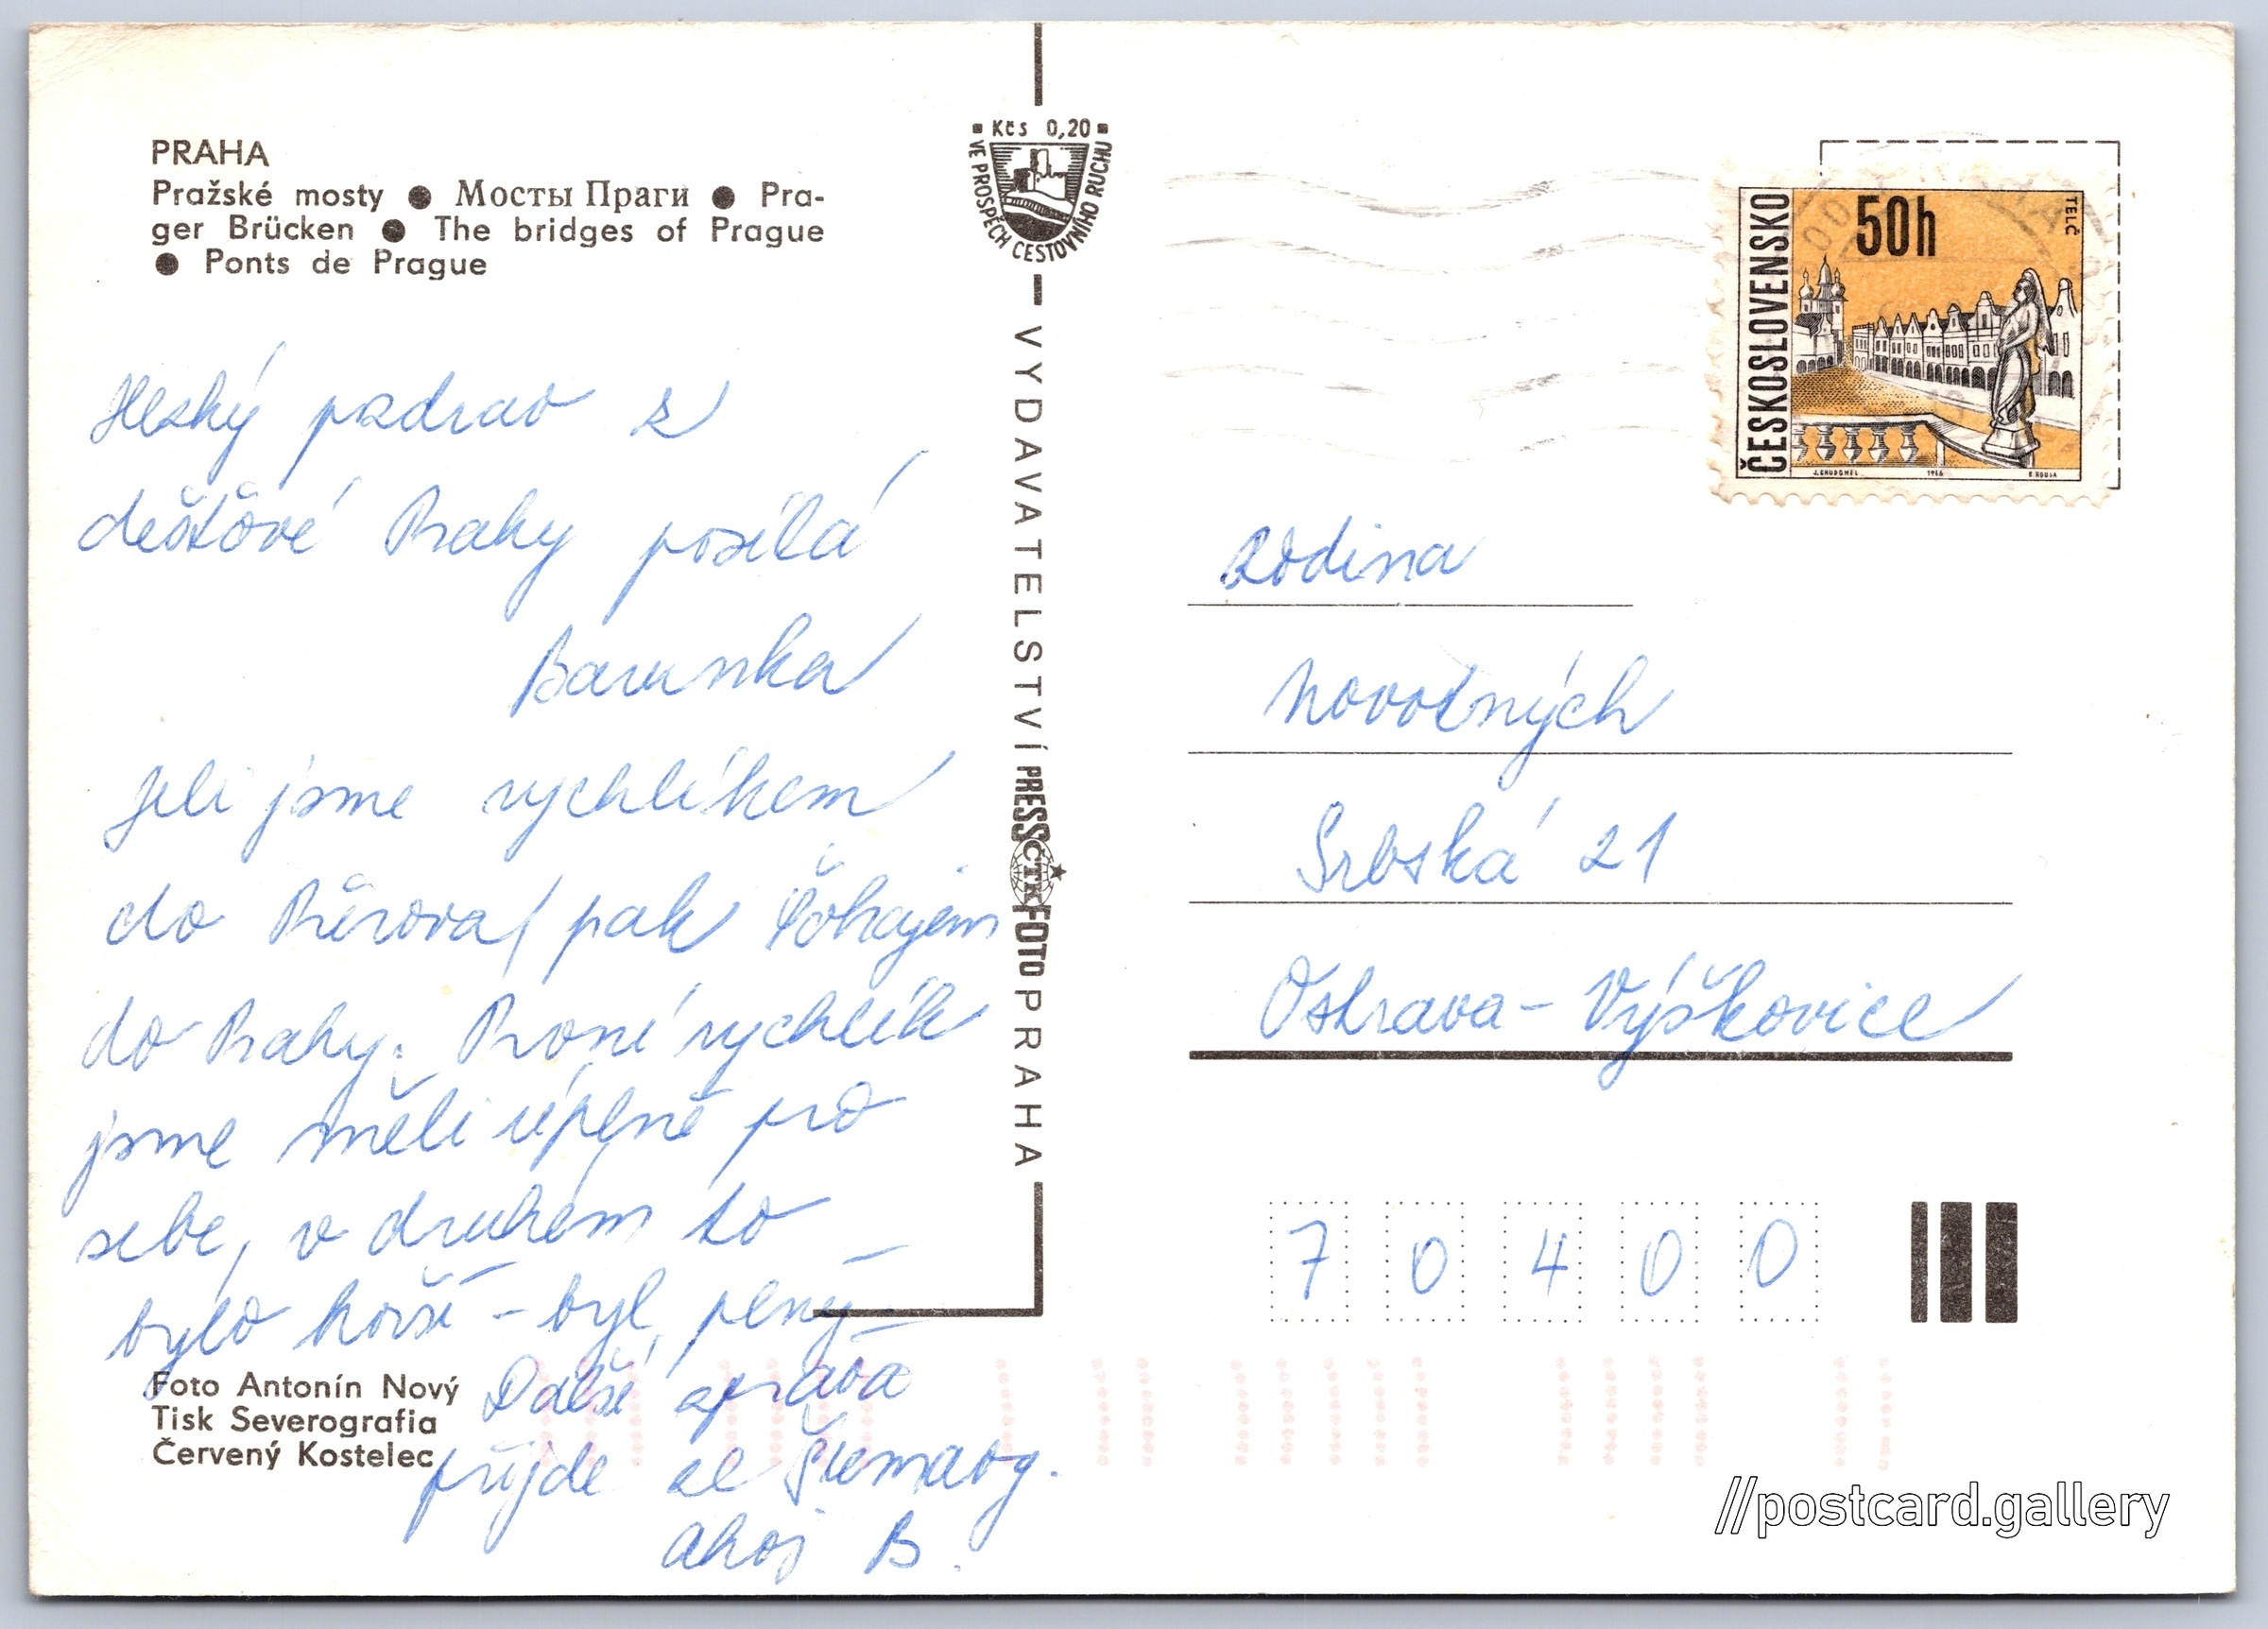 PRAHA
Pražské mosty ● Мосты Праги ● Pra-
ger Brücken ● The bridges of Prague
● Ponts de Prague
Hezký pozdrav z
deštové Prahy posílá
Barunka
Jeli jsme rychlíkem
do Přerova, pak
do Prahy. První rychlík
jsme měli úplně pro
sebe, v druhém to
bylo horší - byl plný
Další zpráva
přijde ze Šumavy.
Ahoj B.
Foto Antonín Nový
Tisk Severografia
Červený Kostelec
Kčs 0,20
VE PROSPĚCH CESTOVNÍHO RUCHU
VYDAVATELSTVÍ PRESSFOTO PRAHA
ČTK
ČESKOSLOVENSKO
50h
TELČ
J. CHUDOMEL 1966
Rodina
Novotných
Srbská 21
Ostrava - Výškovice
70400
//postcard.gallery